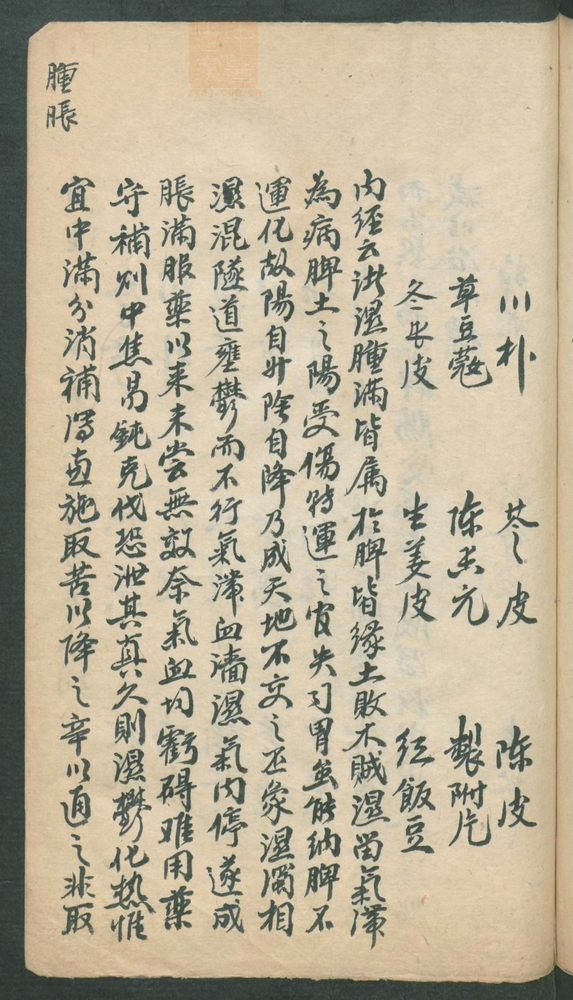 川朴 苓皮 陈皮
草豆蔻 陈香元 製附片
冬瓜皮 生姜皮 红飯豆
内经云諸濕腫滿皆属於脾皆缘土敗木贼濕留氣滞
為病脾土之陽受傷转運之官失司胃虽能纳脾不
運化故陽自升陰自降乃成天地不交之否象濕濁相
濕混隧道壅鬱而不行氣滞血濇濕氣内停遂成
脹滿服藥以来未尝無效奈氣血均虧碍难用藥
守補则中焦易鈍克伐恐泄其真久則濕鬱化热惟
宜中滿分消補瀉兼施取苦以降之辛以通之非取
腫脹